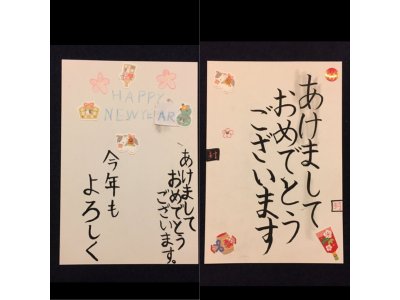 HAPPY
NEWYEAR
あけまして
おめでとう
ございます。
今年も
よろしく
あけまして
おめでとう
ございます